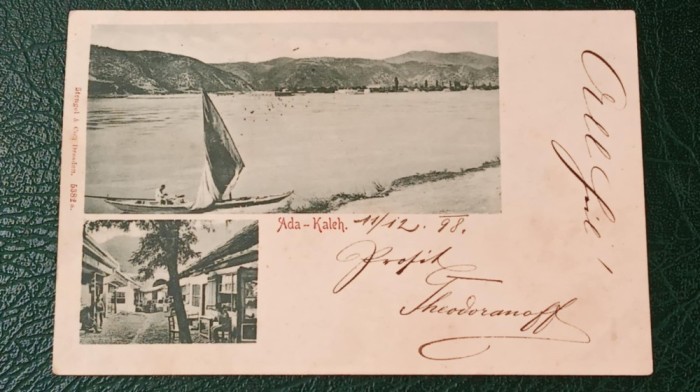 Stengel & Co., Dresden. 5382 c.
Ada-Kaleh.
11/12 98.
Prosit
Theodoranoff
All Heil!